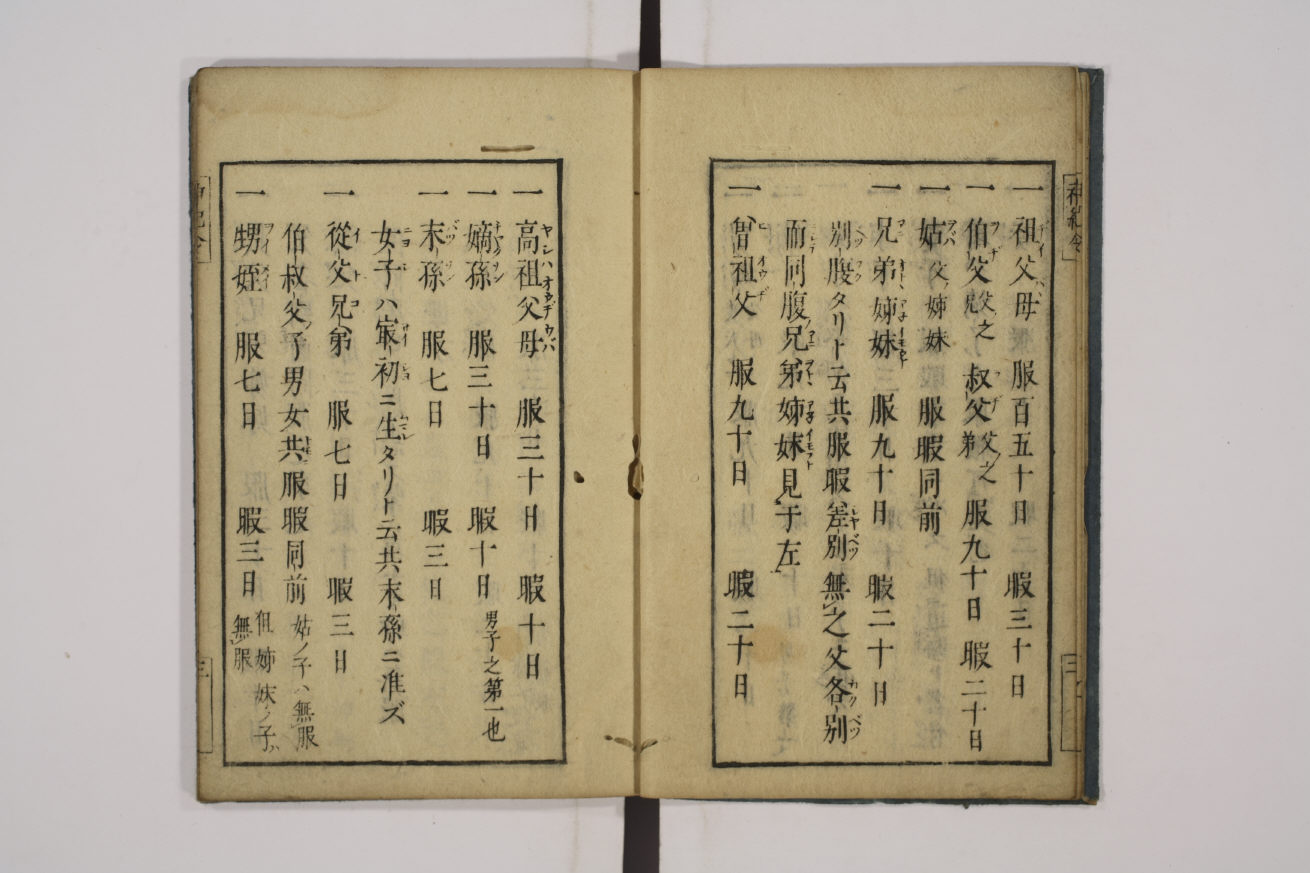 一 祖父母 服百五十日 暇三十日
一 伯父父之兄 叔父父之弟 服九十日 暇二十日
一 姑父ノ姉妹 服暇同前
一 兄弟姉妹 服九十日 暇二十日
別腹タリト云共服暇差別無之父各別
而同腹兄弟姉妹見于左
一 曽祖父 服九十日 暇二十日
一 高祖父母 服三十日 暇十日
一 嫡孫 服三十日 暇十日 男子之第一也
一 末孫 服七日 暇三日
女子ハ最初ニ生タリト云共末孫ニ准ズ
一 從父兄弟 服七日 暇三日
伯叔父ノ子男女共服暇同前 姑ノ子ハ無服
一 甥姪 服七日 暇三日 但姉妹ノ子ハ無服